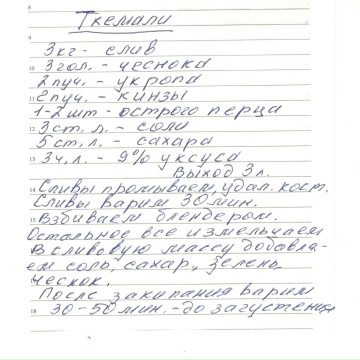 8
Ткемали
9
3кг - слив
10 3гол. - чеснока
2пуч. - укропа
11 2пуч. - кинзы
1-2шт - острого перца
12 3ст. л. - соли
5ст. л. - сахара
13 3ч. л. - 9% уксуса
Выход 3л.
14 Сливы промываем, удал. кост.
Сливы варим 30мин.
15 Взбиваем блендером.
Остальное все измельчаем
В сливовую массу добавля-
ем соль, сахар, зелень
чеснок.
После закипания варим
18 30-50мин. - до загустения